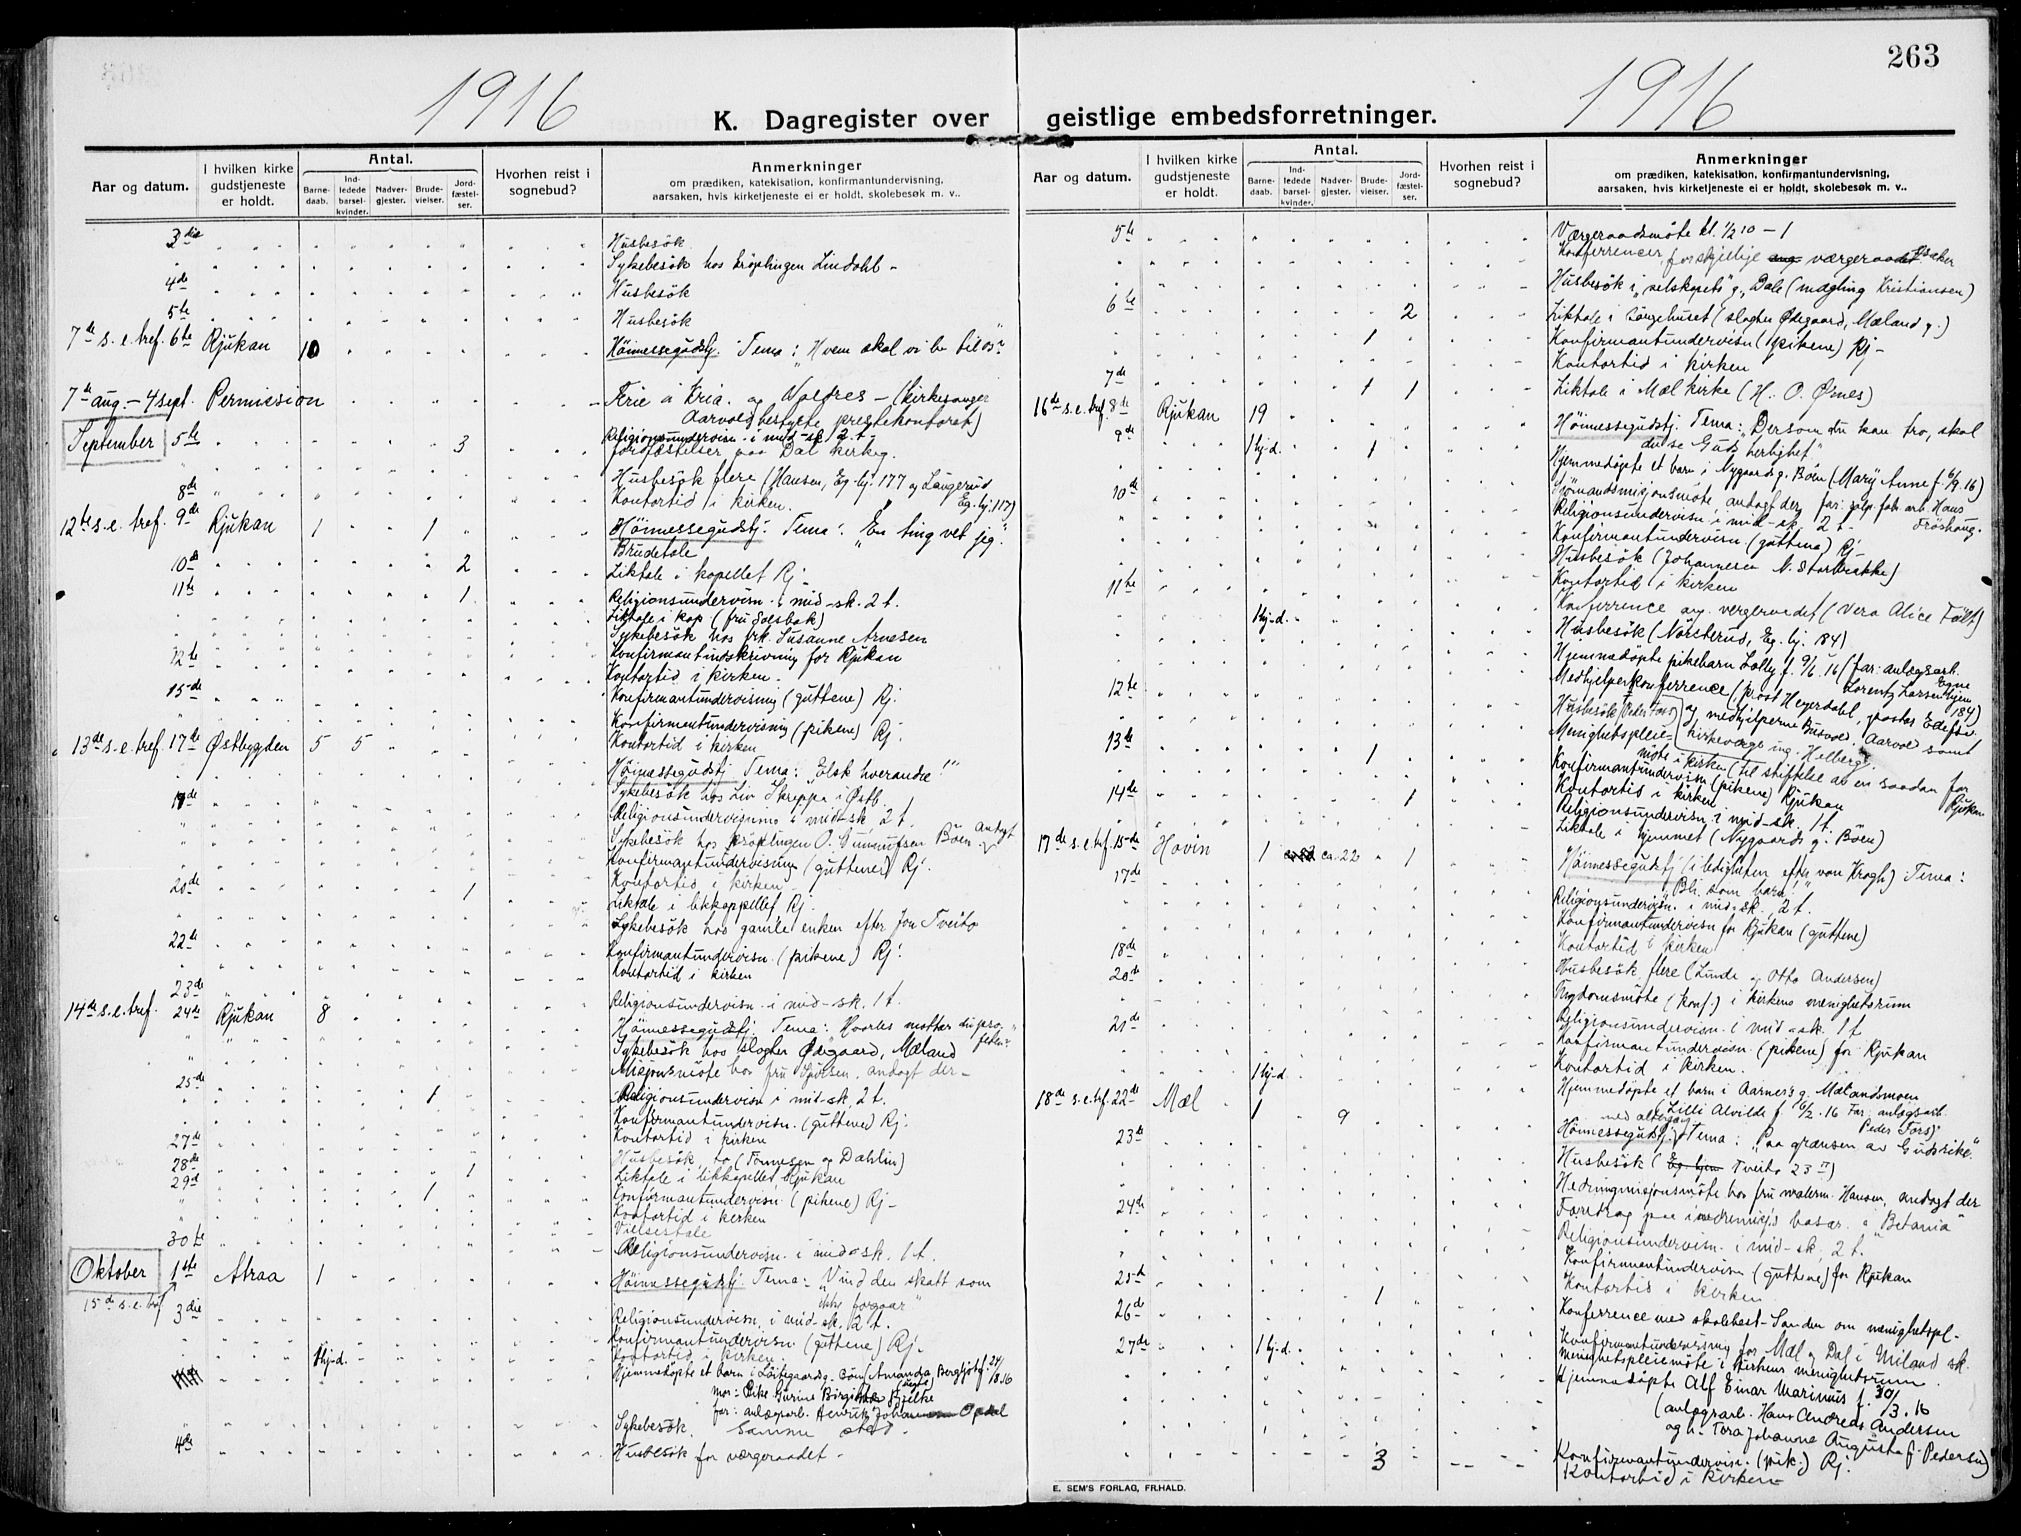 263
1916
1916
K. Dagregister over geistlige embedsforretninger.
Aar og datum.
I hvilken kirke gudstjeneste er holdt.
Antal.
Barnedaab.
Indledede barselkvinder.
Nadvergjester.
Brudevielser.
Jordfæstelser.
Hvorhen reist i sognebud?
Anmerkninger
om prædiken, katekisation, konfirmantundervisning,
aarsaken, hvis kirketjeneste ei er holdt, skolebesøk m. v..
3die Husbesök
Sykebesök hos kröplingen Lindahl -
4de Husbesök
5te Husbesök
7de s. e. tref. 6te Rjukan 10 Höimessegudstj. Tema: "Hvem skal vi be til os"
7de aug. - 4 sept. Permission Ferie i Kria. og Valdres - (kirkesanger
Aarvold bestyrte prestekontoret)
September 5te 3 Religionsundervisn. i mid-sk 2 t.
Jordfæstelser paa Dal kirkeg.
Husbesök flere (Hansen, Eg. hj. 177 og Langerud
Eg. hj. 117)
8de Kontortid i kirken.
12te s. e. tref. 9de Rjukan 1 1 Höimessegudstj. Tema: "En ting vet jeg."
Brudetale
10de 2 Liktale i kapellet Rj -
11te 1 Religionsundervisn. i mid-sk. 2 t.
Liktale i kap (fru Solbak)
Sykebesök hos frk. Susanne Arnesen
12te Konfirmantindskrivning for Rjukan
Kontortid i kirken.
15de Konfirmantundervisning (guttene) Rj.
Konfirmantundervisning (pikene) Rj.
Kontortid i kirken
13de s. e. tref. 17de Østbygden 5 5 Höimessegudstj Tema: "Elsk hverandre!"
Sykebesök hos Liv Skreppa i Østb.
Religionsundervisning i mid-sk. 2 t.
Sykebesök hos kröplingen O. Gunnufsen Böen. Andagt
Konfirmantundervisning (guttene) Rj.
Kontortid i kirken
20de 1 Liktale i likkapellet Rj -
Sykebesök hos gamle enken efter Jon Tveito
22de Konfirmantundervisn. (pikene) Rj.
Kontortid i kirken
23de Religionsundervisn. i mid-sk. 1 t.
14de s. e. tref. 24de Rjukan 8 Höimessegudstj. Tema: "Hvorles mottar du profeten?"
Sykebesök hos slagter Ødegaard, Mæland
Misjonsmöte hos fru Sjursen, andagt der -
25de 1 Religionsundervisn. i mid-sk. 2 t.
Konfirmantundervisn. (guttene) Rj.
Kontortid i kirken
27de Husbesök to (Tönnesen og Dahlin)
28de 1 Liktale i likkapellet Rjukan
29de 1 Konfirmantundervisn. (pikene) Rj -
Kontortid i kirken
Vielsestale
30te Religionsundervisn. i mid-sk. 1 t.
Oktober 1ste Atraa 1 Höimessegudstj. Tema: "Vind den skatt som
ikke forgaar"
15de s. e. tref.
3die Religionsundervisn. i mid-sk. 2 t.
Konfirmantundervisn (guttene) Rj.
Kontortid i kirken.
1 hj-d. Hjemmedöpte et barn i Löitegaardsg. Böen (Amanda Bergljot f. 24/8. 16
mor: Pike Gurine Birgitte Bjelke
far: anlægsarb. Henrik Johan
Sykebesök. Samme sted.
4de Husbesök for værgeraadet -
Aar og datum.
I hvilken kirke gudstjeneste er holdt.
Antal.
Barnedaab.
Indledede barselkvinder.
Nadvergjester.
Brudevielser.
Jordfæstelser.
Hvorhen reist i sognebud?
Anmerkninger
om prædiken, katekisation, konfirmantundervisning,
aarsaken, hvis kirketjeneste ei er holdt, skolebesøk m. v..
5te Værgeraadsmöte kl. 1/2 10 - 1
Konferencer, forskjellige værgeraadssaker
Husbesök i "selskapets" g., Dale (mægling Kristiansen)
6te 2 Liktale i sörgehuset (slagter Ødegaard, Mæland g.)
1 Konfirmantundervisn. (pikene) Rj -
Kontortid i kirken
7de 1 1 Liktale i Mæl kirke (H. O. Øines)
16de s. e. tref. 8de Rjukan 19 Höimessegudstj. Tema: "Dersom du kan tro, skal
du se Guds herlighet."
9de 1 hj-d. 1 Hjemmedöpte et barn i Nygaards g. Böen (Mary Anne f. 6/9. 16)
Sjömandsmisjonsmöte, andagt der far: salp. fab. arb. Hans Fröshaug.
10de Religionsundervisn. i mid-sk. 2 t.
Konfirmantundervisn. (guttene) Rj -
Husbesök (Johannesen N. Storbrække)
Kontortid i kirken
11te Konferrence ang. vergeraadet (Vera Alice Fält)
1 hj-d. Husbesök (Nörsterud, Eg. hj. 84)
Hjemmedöpte pikebarn Lolly f. 9/6. 16 (far: anlægsarb.
Lorentz Larsen Egne hjem 184)
12te Medhjelperkonferrence (prost Heyerdahl, pastor
Husbesök (Peder Foss) og medhjelperne Busvold, Aarvold samt
kirkeverge ing. Holberg.
13de 1 Menighetspleie-
möte i kirken (til stiftelse av en saadan for Rjukan
Konfirmantundervisn (pikene) Rjukan
Kontortid i kirken
14de 1 Religionsundervisn. i mid-sk. 1 t.
Liktale i hjemmet (Nygaards g. Böen)
17de s. e. tref. 15de Hovin 1 ca. 22 1 Höimessegudstj (i ledigheten efter von Krogh) Tema:
"Bli som barn!"
17de Religionsundervisn. i mid-sk. 2 t.
Konfirmantundervisn for Rjukan (guttene)
Kontortid i kirken
18de Husbesök flere (Linde og Otto Andersen)
20de Ungdomsmöte (konf.) i kirkens menighetsrum
21de Religionsundervisn. i mid-sk. 1 t
Konfirmantundervisn. (pikene) for Rjukan
Kontortid i kirken.
1 hj-d. Hjemmedöpte et barn i Aarnes g. Mælandsmoen
(Lilli Alvilde f. 6/2. 16 Far: anlægsarb. Peder Fors).
18de s. e. tref. 22de Mæl 1 9 med altergang
Höimessegudstj. Tema: "Paa grænsen av Gudsrike."
23de Husbesök (Tveito 23 II)
Hedningmisjonsmöte hos fru malerm. Hansen, andagt der
24de Foredrag paa indremisj's basar i "Betania"
Religionsundervisn. i mid-sk. 2 t.
Konfirmantundervisn (guttene) for Rjukan
25de Kontortid i kirken
26de 1 Konferrence med skolebest. Sanden om menighetspl -
Konfirmantundervisning for Mæl og Dal i Miland sk.
27de 1 hj-d. Menighetspleiemöte i kirkens menighetsrum.
Hjemmedöpte Alf Einar Marinius f. 30/3. 16
(anlægsarb. Hans Andreas Andersen
og h. Tora Johanne Augusta f. Pedersen)
3 Konfirmantundervisn. (pik.) Rj.
Kontortid i kirken
E. SEM'S FORLAG, FR.HALD.